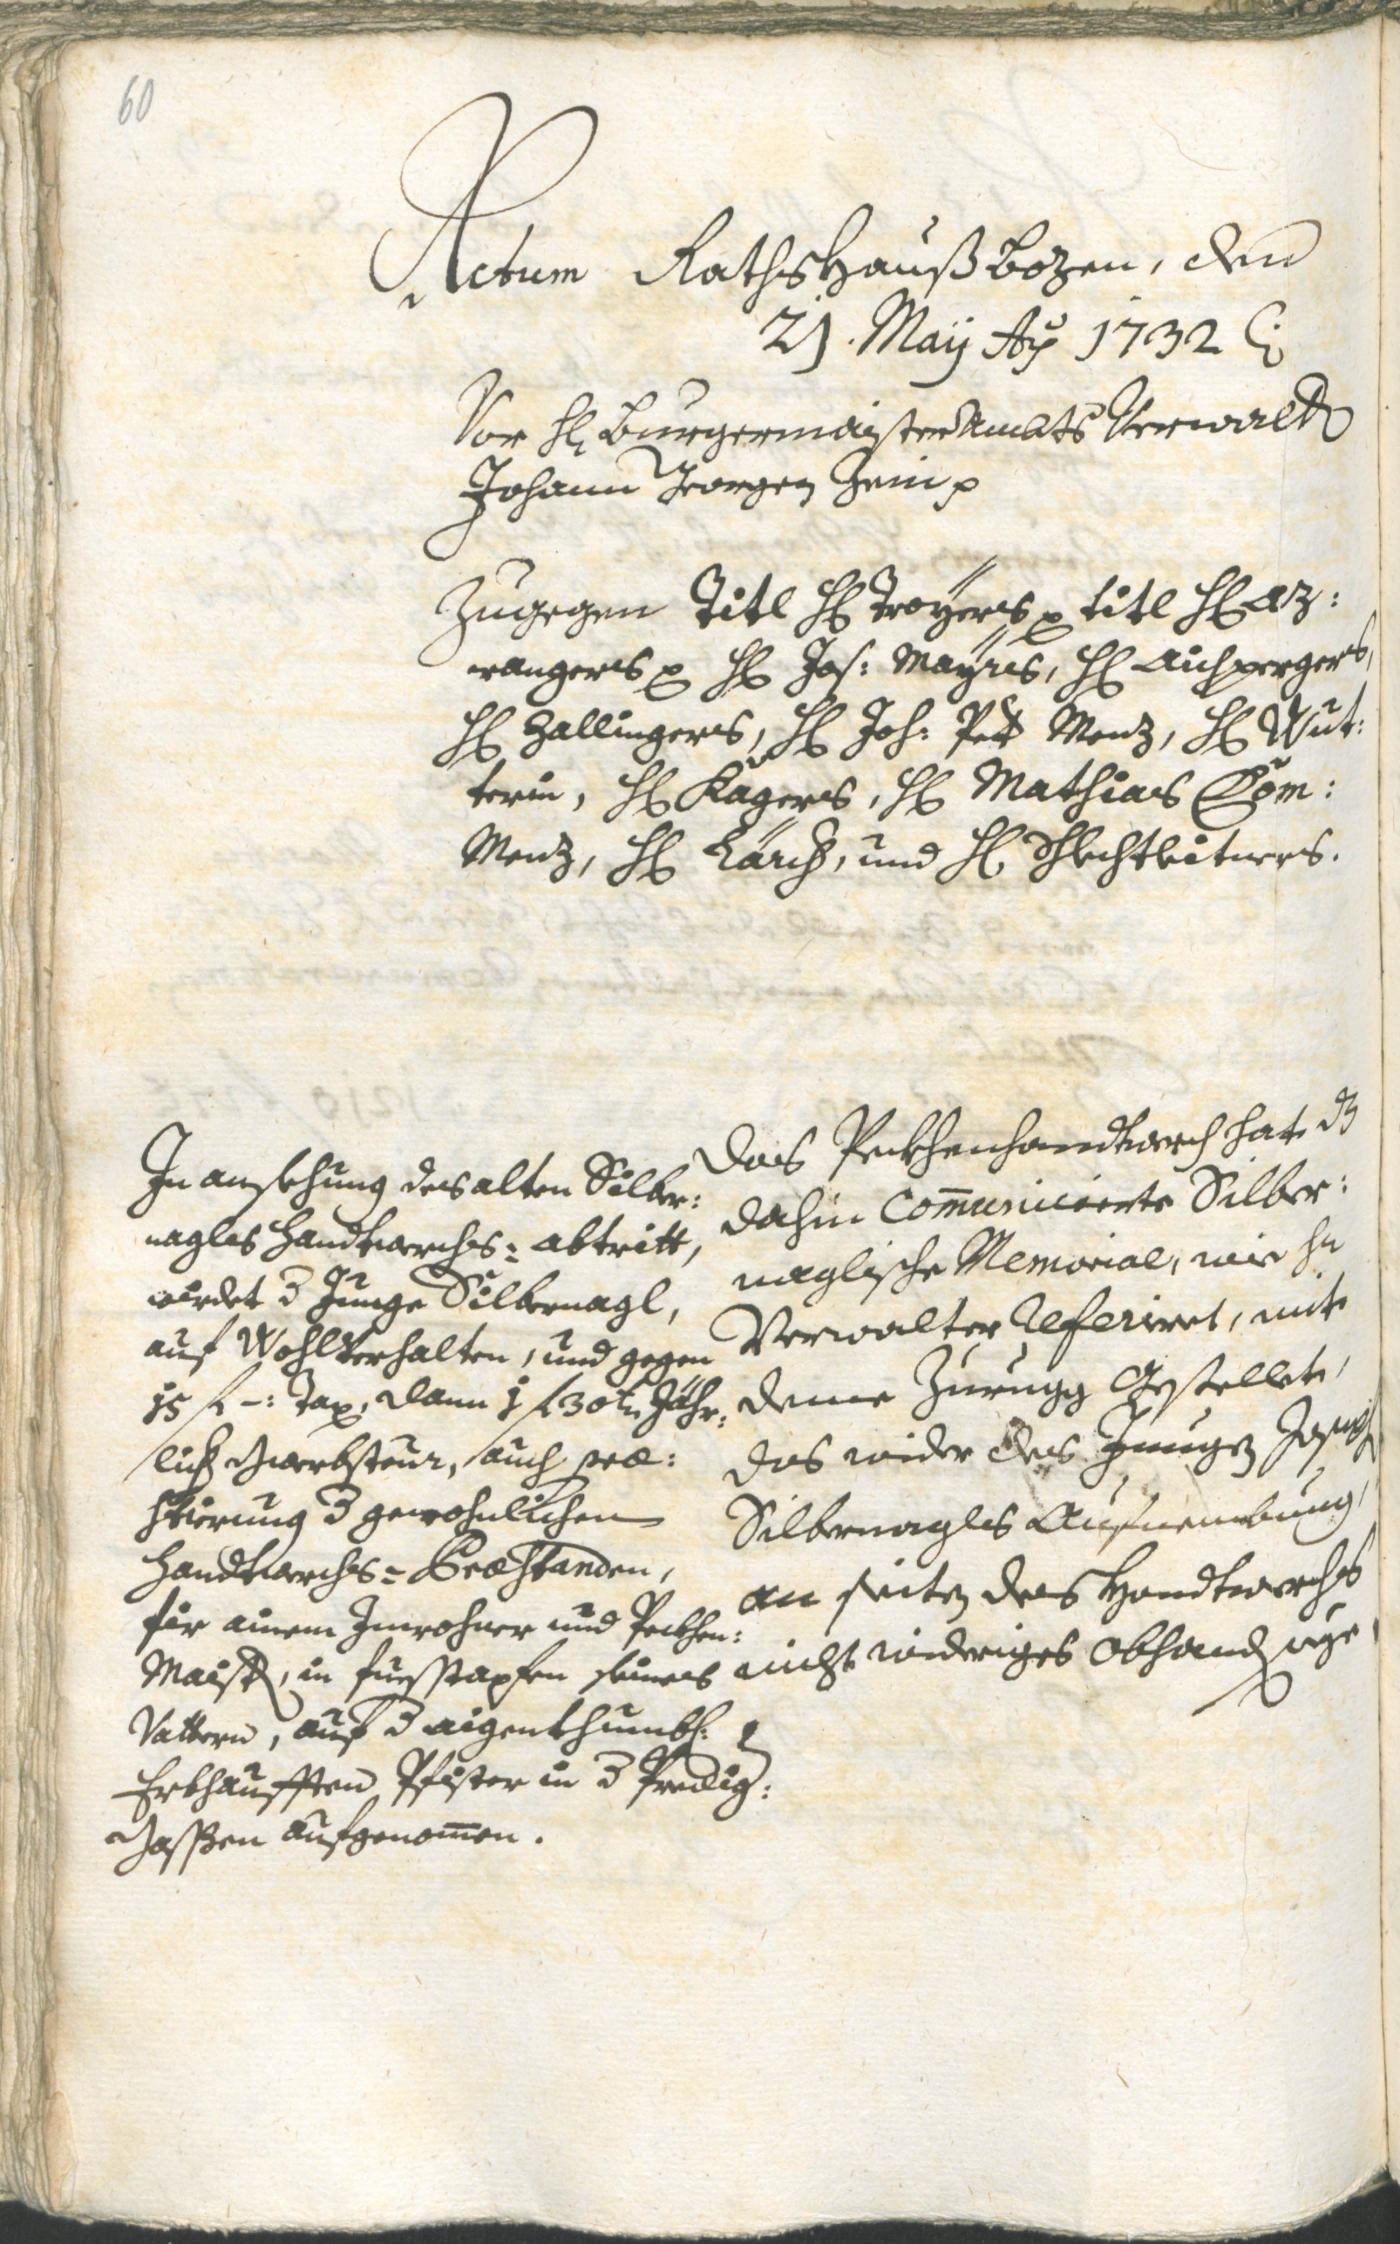 60
Actum Rathshauß Bozen, den
21. Maÿ Ao 1732
Vor H: Burgermaister Ambts Verwalter
Johann Georgen Henig
Zugegen Titl H: Troÿers titl H: Az:
wangers H: Jos: Maÿrs, H: Aichpergers,
H: Zallingers, H: Joh: Pet: Menz, H: Wut:
terin, H: Kagers, H: Mathias
Menz, H: Lärch, und H: Schlechtleitners.
In ansehung des alten Silber:
nagles Handtwerchs=abtritt,
würdet d Junge Silbernagl,
auf Wohlverhalten, und gegen
15 f –: Tax, dann 1 f 30 kr Jähr:
lich Gwerbsteur, auch præ:
stierung d gewohnlichen
Handtwerchs=Præstanden,
für ainem Inwohner und Peckhen:
Maister, in fuesstapfen seines
Vattern, auf d aigenthumbl:
Erkhaufften Pfister in d Predig:
Gassen aufgenommen.
Das Peckhenhandtwerch hat dz
dahin Communicierte Silber:
naglische Memorial, wie H:
Verwalter Referiret, mit
deme Zurugg Gestellet,
das wider des Jungen Joseph
Silbernagls Aufnembung,
an seiten des Handtwerchs
nicht widriges obhandten seye,